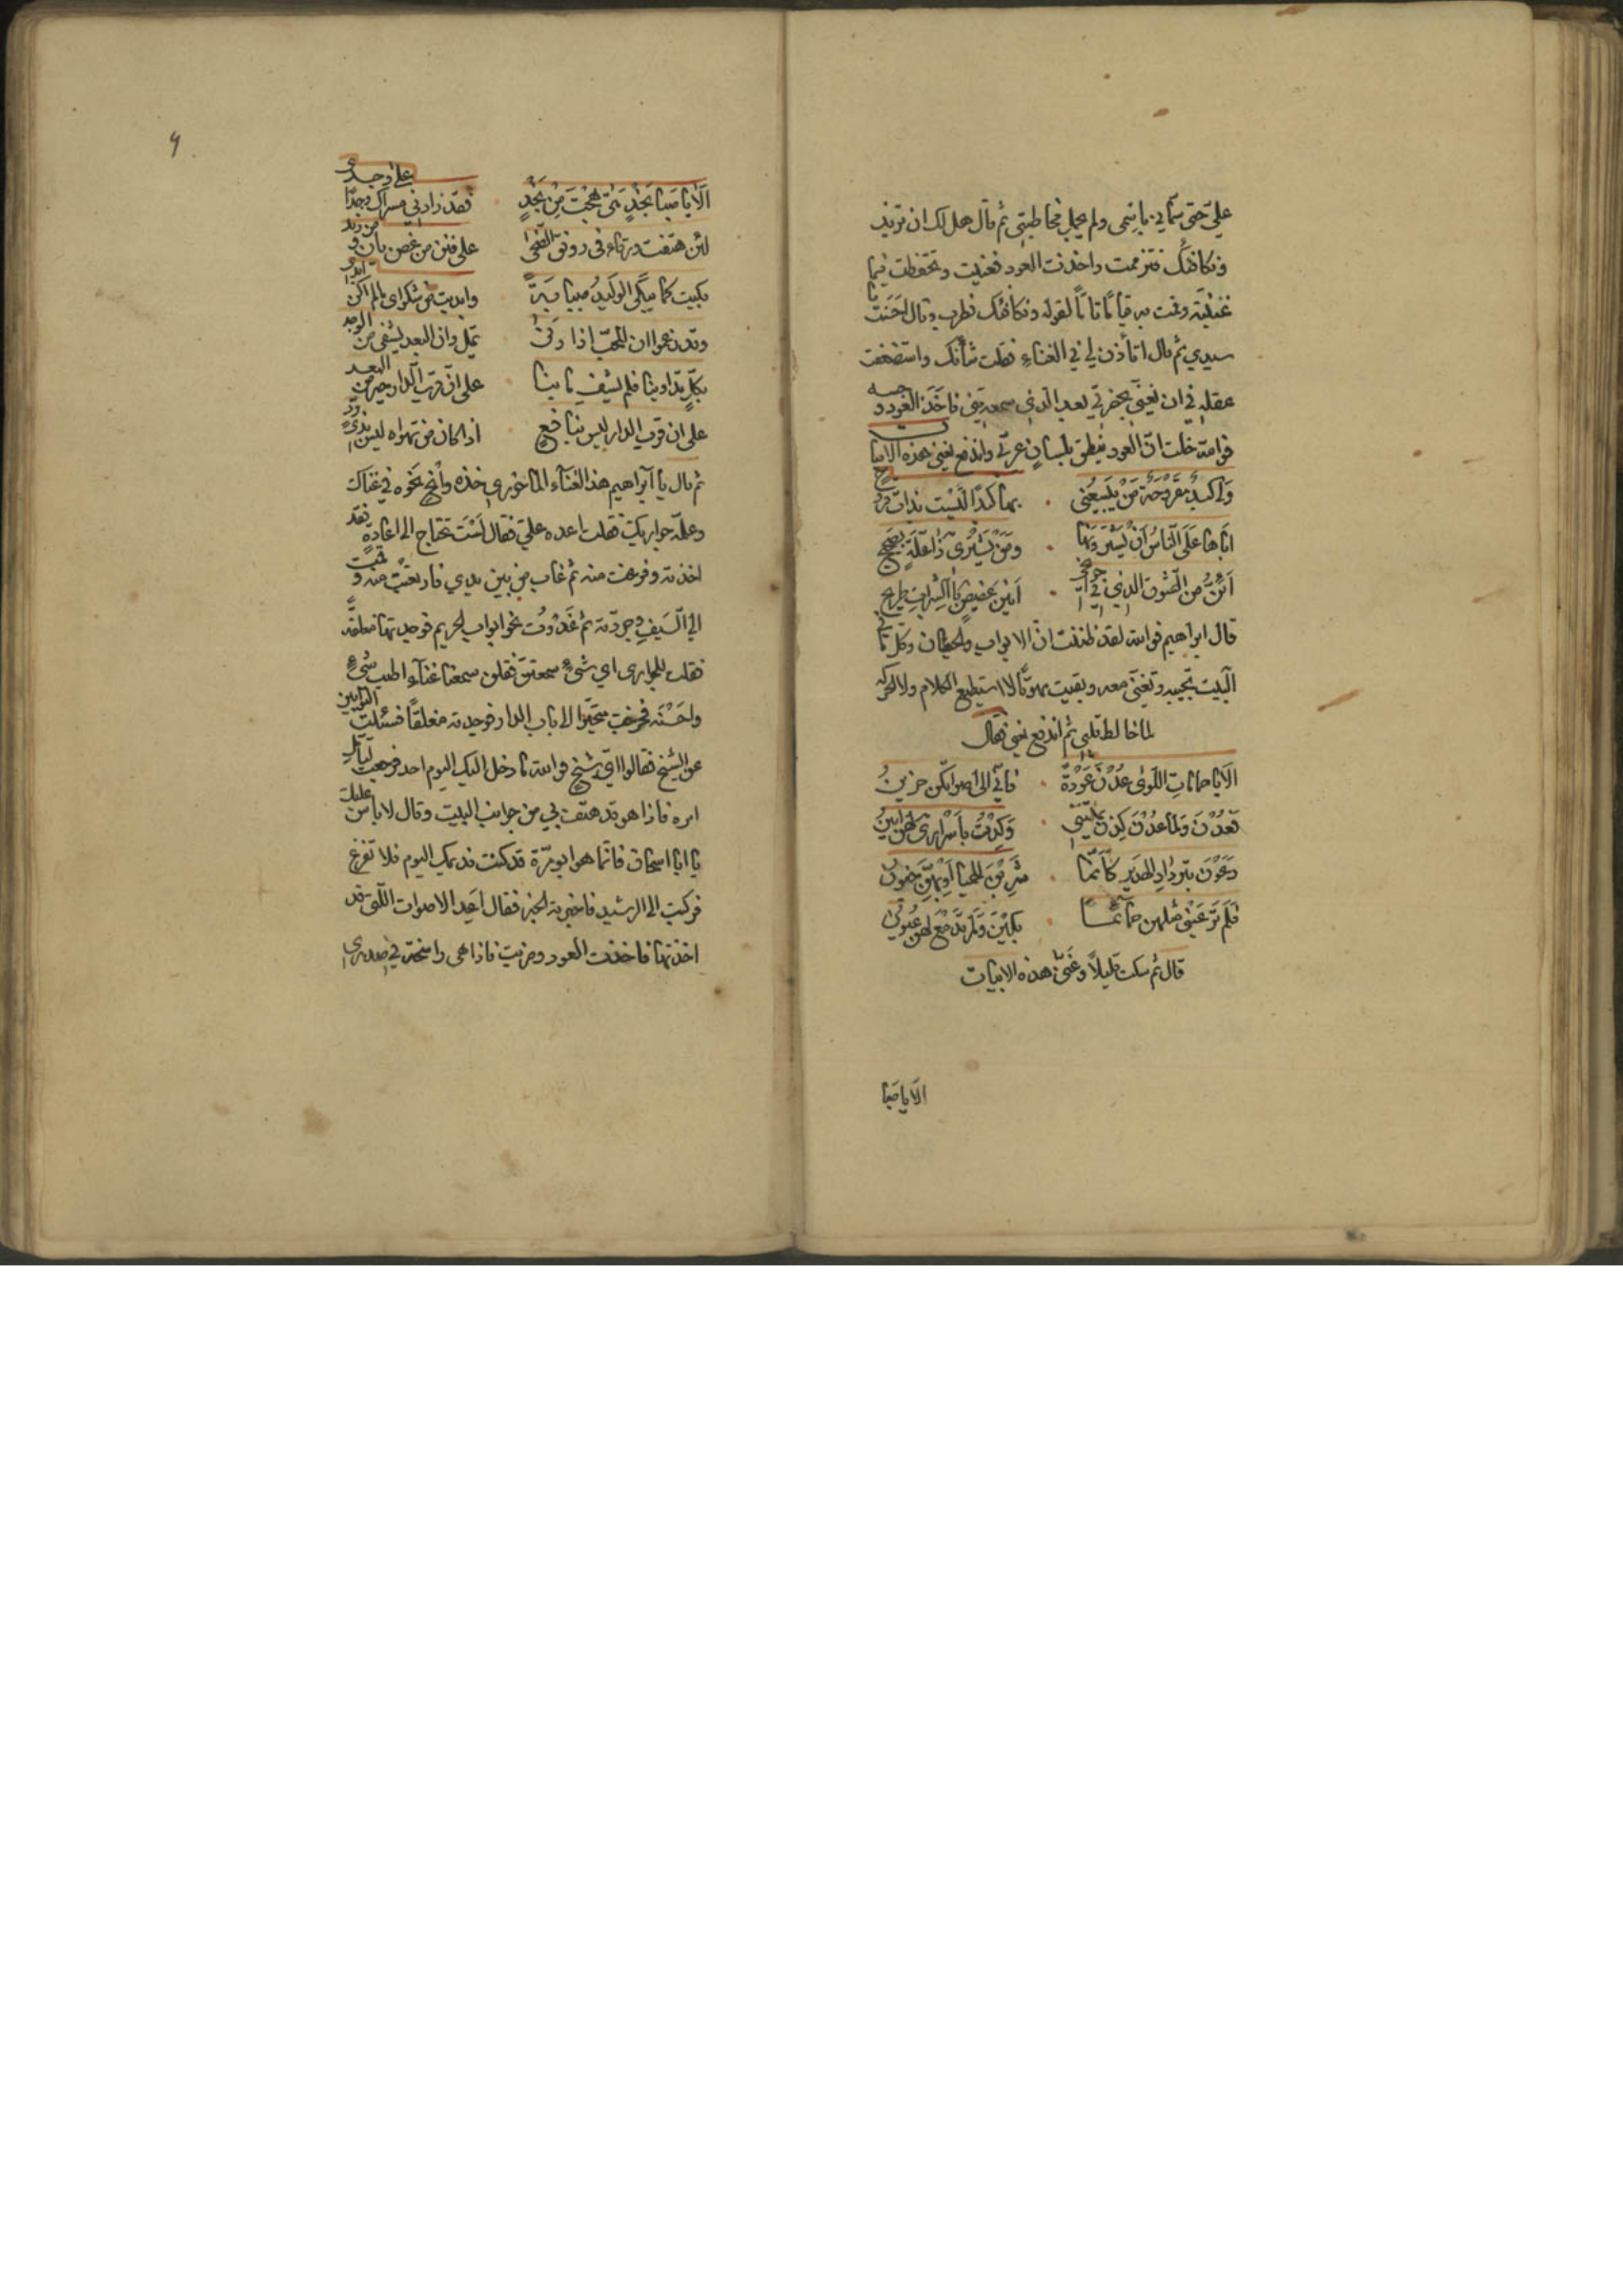 عليّ حتى سمّاني باسمى ولم يجمل مخاطبتى ثم قال هل لك ان تزيد
ونكافئك فتزممت واخذت العود فغنيت وتحفظت فيما
غنيته وقمت به قياماً تامّاً لقوله ونكافئك فطرب وقال احسنت يا
سيدي ثم قال اتأذن لي في الغناء فقلت شأنك واستضعفت
عقله في ان يغنّي بحضرتي بعد الذي سمعه مني فاخذ العود وجسه
فوالله خلت انّ العود ينطق بلسان عربي واندفع يغني هذه الابيات
وَلي كبدٌ مقروحَةٌ مَنْ يَبيعُني ۰ بها كبداً ليْست بذات قروح
اباها عَلَى النّاسُ اَنْ يَشْترُونَها ۰ ومَنْ يَشْتَرِى ذا عِلّةٍ بصَحيح
اَئِنُّ مِنَ الشوق الذي في جوانحى ۰ اَنينَ غصيصٍ بالشراب جريح
قال ابراهيم فوالله لقد ظننت انّ الابواب والحيطان وكل ما في
البيت تجيبه وتغنّي معه وبقيت مبهوتاً لا استطيع الكلام ولا الحركه
لما خالط قلبي ثم اندفع يغني فقال
الا يا حمامات اللّوى عُدْنَ عَوْدَةً ۰ فانّي الى اصواتكن حزينُ
فَعُدْنَ وَلما عُدْنَ كِدْنَ يُمتْنني ۰ وَكِدْتُ بأسْراري لهن اُبينُ
دَعَوْنَ بتَرْدادِ الهدير كأنّما ۰ شَرِبْنَ الحميّا اَوْ بهنّ جنونُ
فَلَم تَرَ عَيْني مثلهن حمائما ۰ بكَيْنَ وَلم تدمَعْ لهنّ عيونُ
قال ثم سكت قليلاً وغَنّى هذه الابيات
الا يا صَبا
الا يا صَبا نَجْدٍ مَتى هِجْتَ مِنْ نَجْدٍ ۰ فقد زادني مسراك وجداً على وجدى
لئن هتفت ورقاء في رونق الضّحى ۰ على فنن من غصن بان ومن رند
بكيت كما يبكى الوليدُ صبابةً ۰ وابديت من شكواى ما لم اكن ابدى
وقد زعموا ان المحبّ اذا دنى ۰ يمل وان البعد يشفي من الوجد
بكلّ تداوينا فلم يشف ما بنا ۰ على انّ قربَ الدار خير من البعد
على ان قرب الدار ليس بنافع ۰ اذا كان من تهواه ليس بذي ودّ
ثم قال يا ابراهيم هذا الغناء الماخوري خذه وانح نحوه في غناك
وعلّمه جواريك فقلت اعده عليّ فقال لَسْتَ تحتاج الى اعادةٍ فقد
اخذته وفرغت منه ثم غاب من بين يدي فارتعْت منه وقمت
الى السَيف وجرّدته ثم غَدَوْت نحو ابواب الحريم فوجدتها مغلقةً
فقلت للجواري اي شئٍ سمعتنّ فقلن سمعنا غناءً اطيب شئٍ
واحسنه فخرجت متحيّرا الى باب الدار فوجدته مغلقاً فسئلت البوّابين
عن الشيخ فقالوا ايّ شيخٍ فوالله ما دخل اليك اليوم احد فرجعت ليتأمل
امره فاذا هو قد هتف بي من جوانب البيت وقال لا بأس عليك
يا ابا اسحاق فانّما هو ابو مرّة قد كنت نديمك اليوم فلا تفزع
فركبت الى الرشيد فاخبرته الخبر فقال اَعِد الاصوات اللّتى قد
اخذتها فاخذت العود وضربت فاذا هى راسخة في صدرى